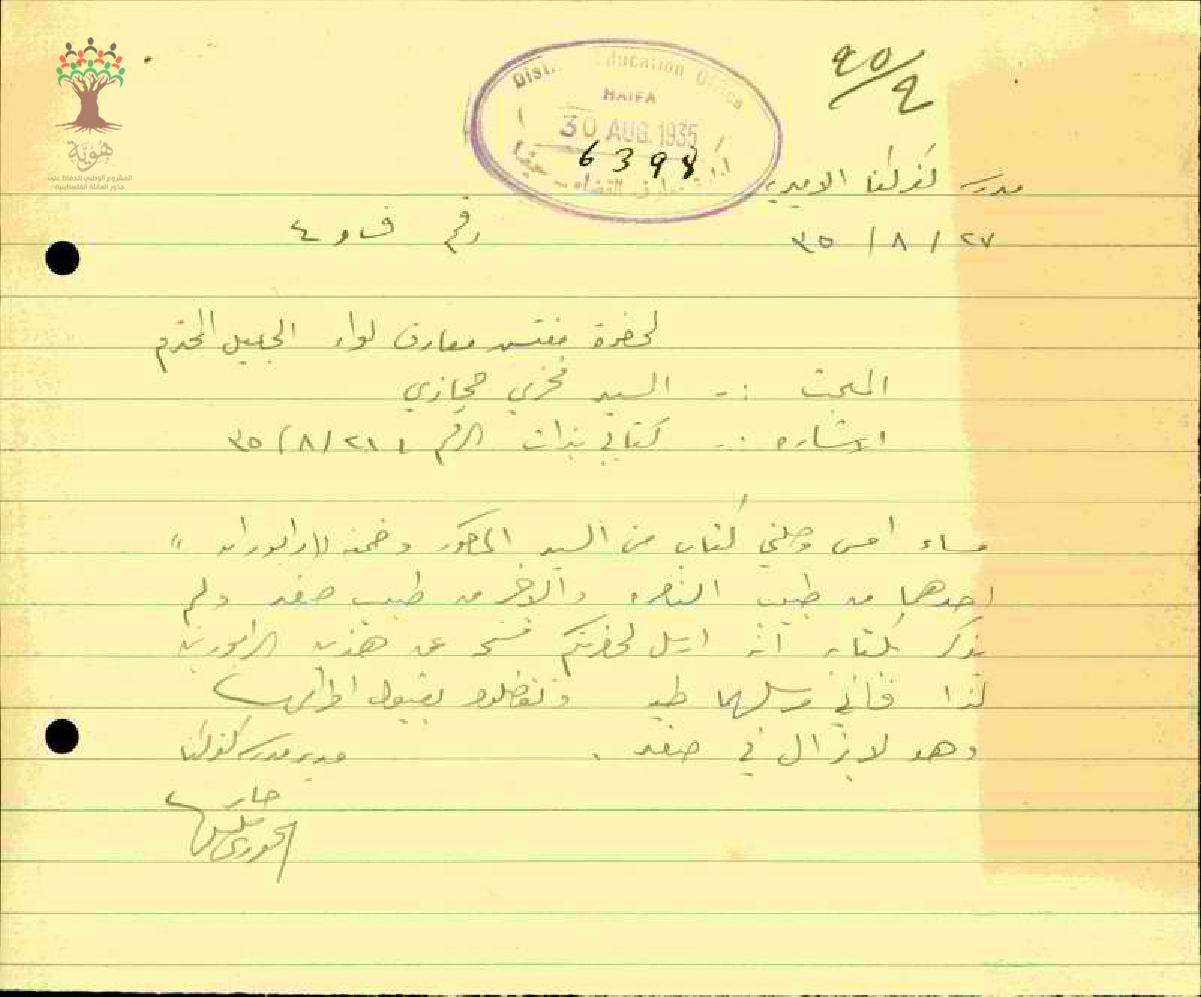 هوية
المشروع الوطني للحفاظ على
جذور العائلة الفلسطينية
District Education Office
HAIFA
30 AUG. 1935
6398
٩٥/٩
مدرسة كفركنا الاميرية
٢٧ / ٨ / ٣٥
رقم ف و ٤
لحضرة مفتش معارف لواء الجليل المحترم
المبحث :- السيد فخري حجازي
الاشارة :- كتابي بذات الرقم ٢١/٨/٣٥
مساء امس وصلني كتاب من السيد المذكور وضمنه "رابوران"
احدهما من طبيب الناصره والاخر من طبيب صفد ولم
يذكر بكتابه انه ارسل لحضرتكم نسخه عن هذين الرابورين
لذا فاني مرسلهما طيه وتفضلوا بقبول احترامي
وهو لا يزال في صفد .
مدير مدرسة كفركنا
الخوري